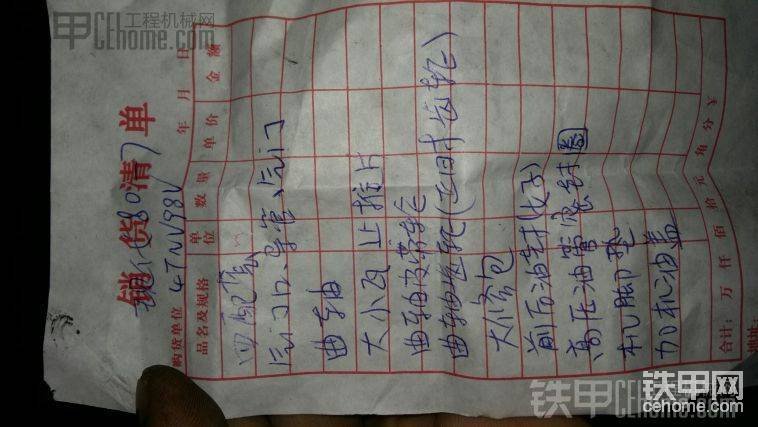 工程机械网
CEhome.com
销货清单
4TNV98V
购货单位
年 月 日
品名及规格 单位 数量 单价 金额
四配套
气门口、导管、气门
曲轴
大小瓦 止推片
曲轴皮带轮
曲轴齿轮(正时齿轮)
大修包
前后油封(好)
高压油管密封圈
机脚垫
加机油盖
合计: 万 仟 佰 拾 元 角 分 ¥
地址:
铁甲CEhome.com
铁甲网
cehome.com